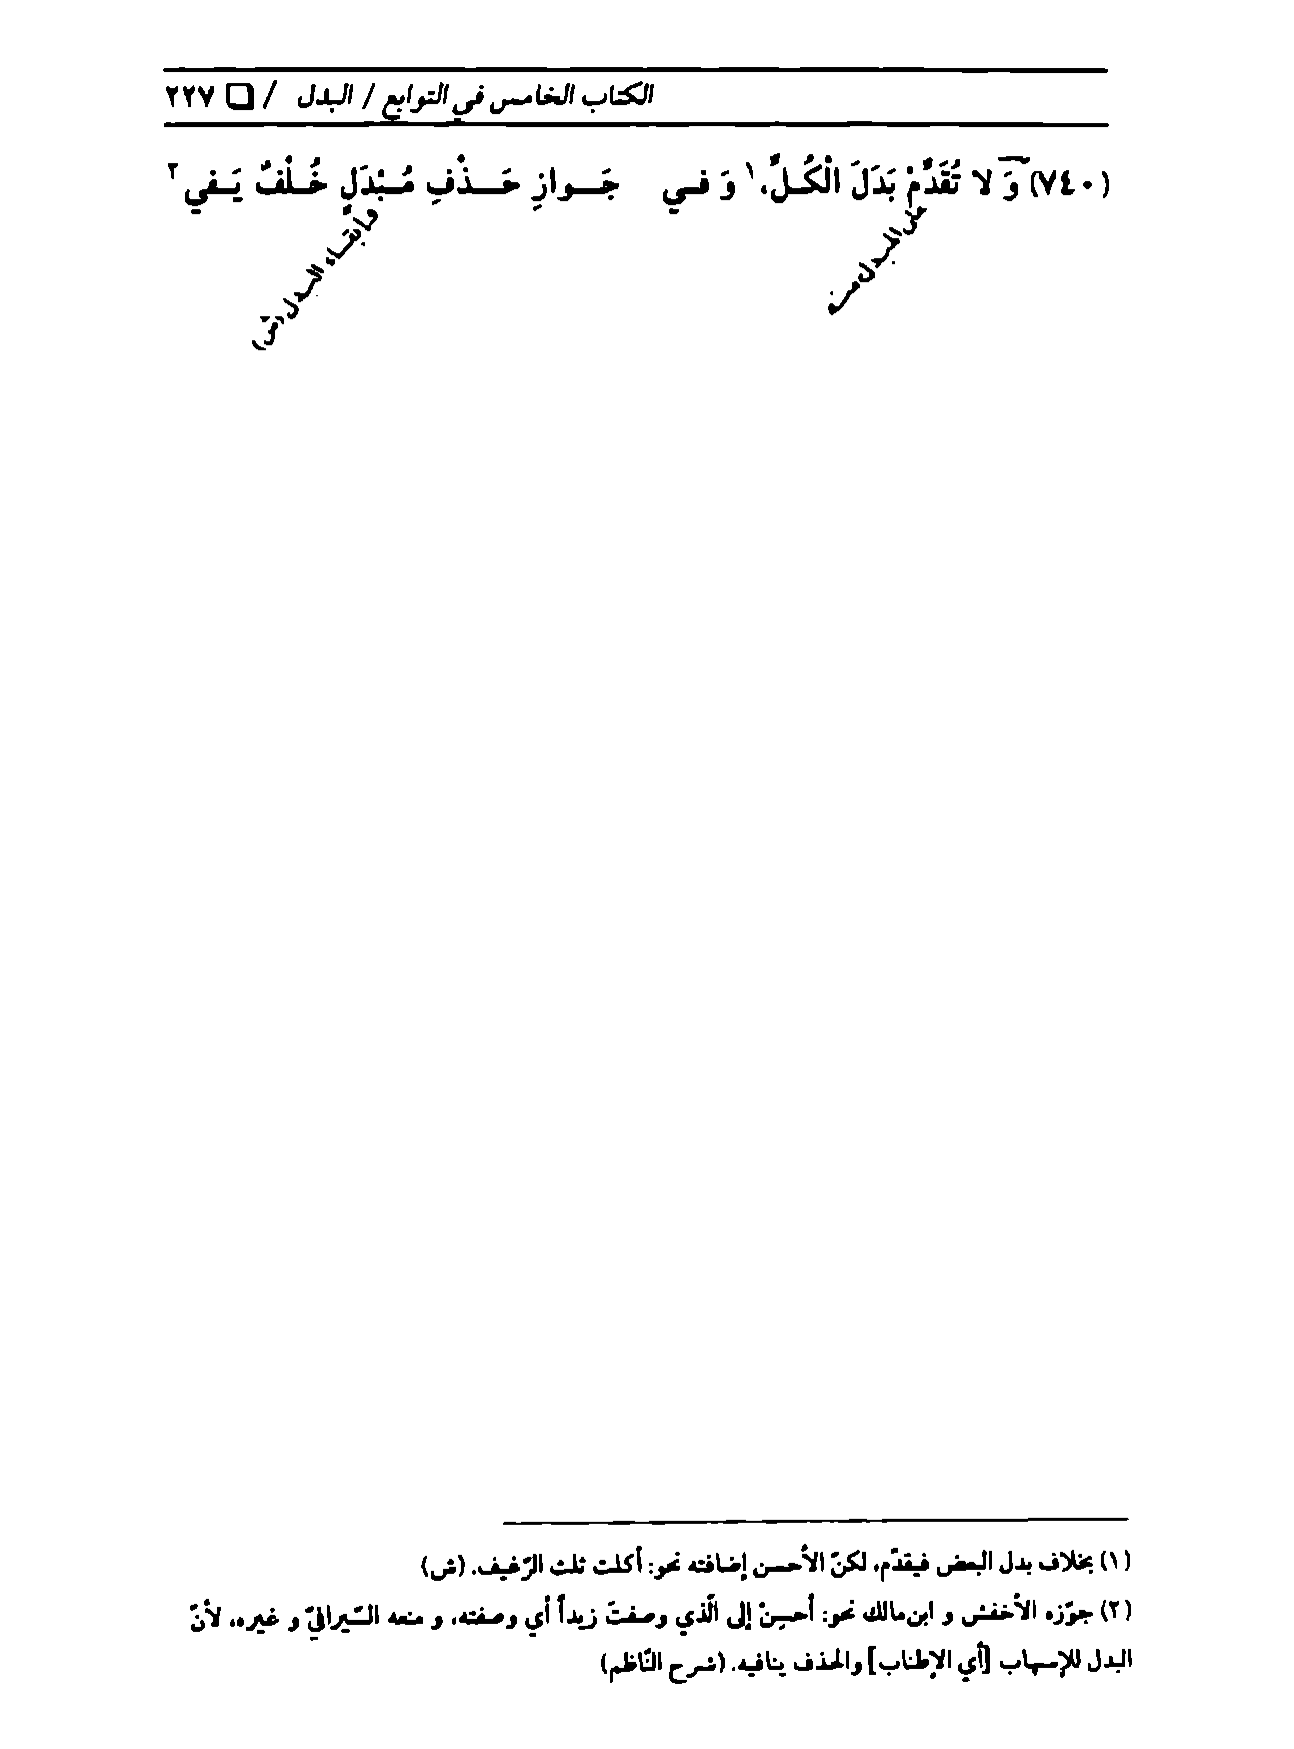 الكتاب الخامس في التوابع / البدل / □ ٢٢٧
(٧٤٠) وَ لا تُقَدِّمْ بَدَلَ الْكُـلِّ،١ وَ فـي جَــوازِ حَــذْفِ مُـبْدَلٍ خُـلْفٌ يَـفي٢
على المبدل منه
و إبقـاء البـدل (ش)
(١) بخلاف بدل البعض فيقدّم، لكنّ الأحسن إضافته نحو: أكلت ثلث الرّغيف. (ش)
(٢) جوّزه الأخفش و ابن‌مالك نحو: أحسِنْ إلى الّذي وصفتَ زيداً أي وصفته، و منعه السّيرافيّ و غيره، لأنّ
البدل للإسهاب [أي الإطناب] والحذف ينافيه. (شرح النّاظم)